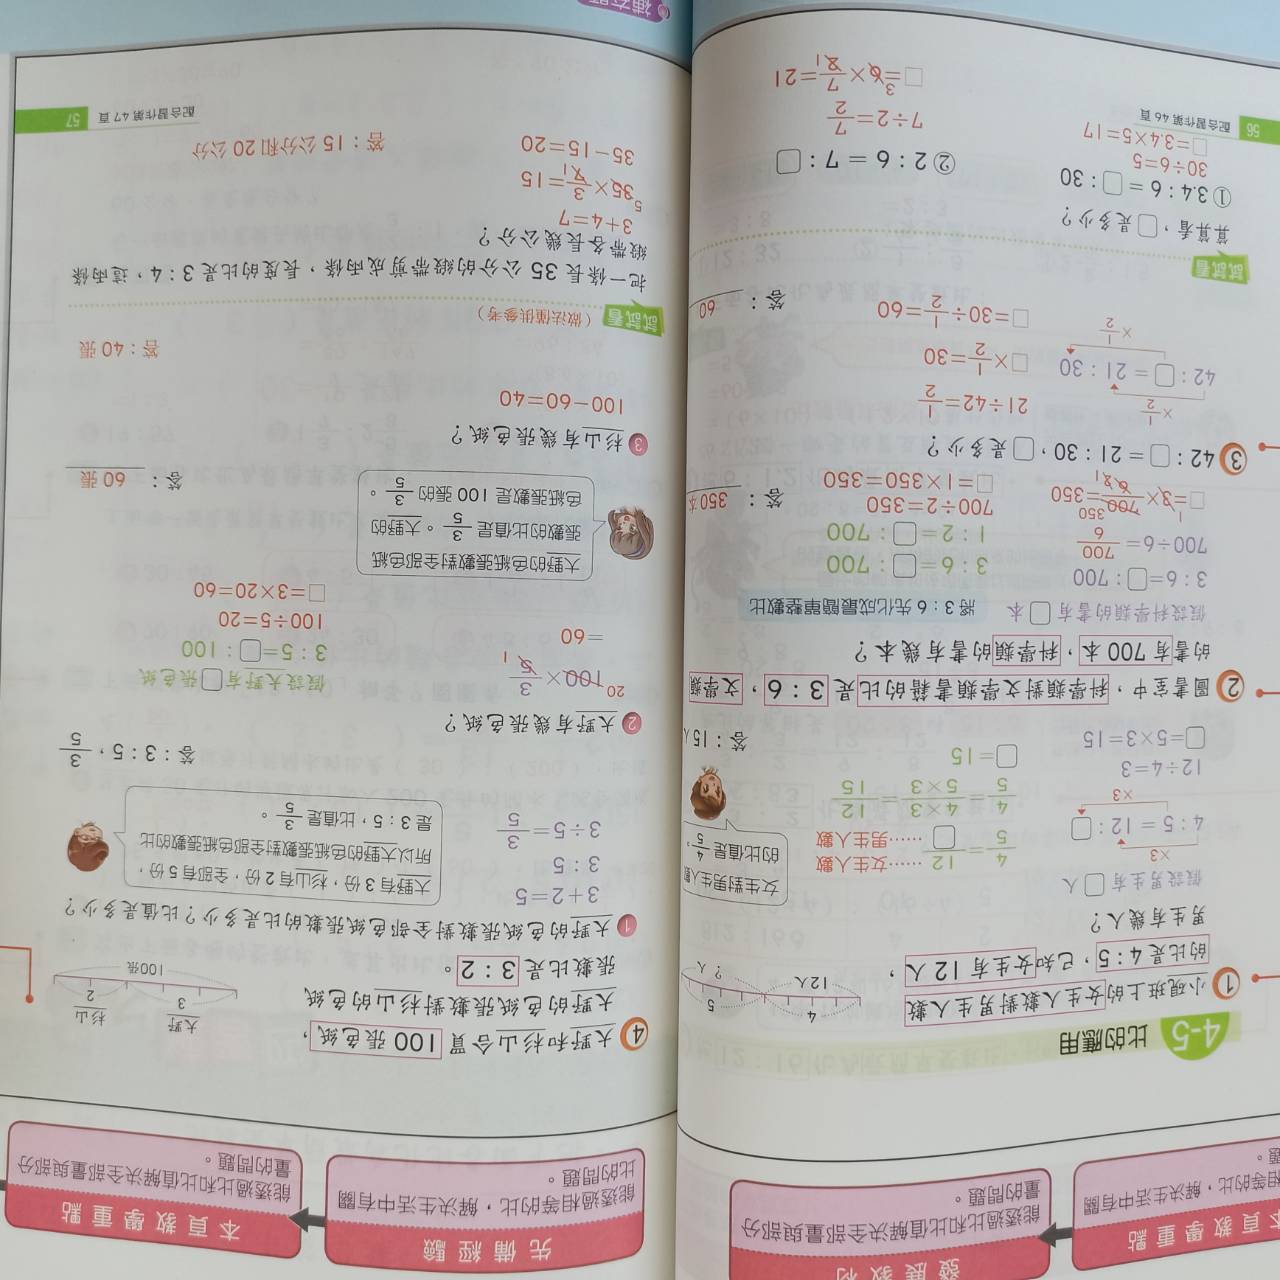 本頁教學重點
能透過相等的比，解決生活中有關
問題。
發展教材
能透過比和比值解決全部量與部分
量的問題。
4-5 比的應用
1 小硯班上的女生人數對男生人數
的比是 4：5，已知女生有 12 人，
男生有幾人？
4
12人
5
？人
假設男生有□人
×3
4：5＝12：□
×3
12÷4＝3
□＝5×3＝15
女生對男生人數
的比值是 4/5，
4/5＝12/□ ……女生人數 ……男生人數
4/5＝4×3/5×3＝12/15
□＝15
答：15人
2 圖書室中，科學類對文學類書籍的比是 3：6，文學類
的書有 700 本，科學類的書有幾本？
假設科學類的書有□本
將 3：6 先化成最簡單整數比
3：6＝□：700
700÷6＝700/6
□＝3×700/6＝350
1
350
2
1
3：6＝□：700
1：2＝□：700
700÷2＝350
□＝1×350＝350
答：350本
3 42：□＝21：30，□是多少？
×1/2
42：□＝21：30
×1/2
21÷42＝1/2
□×1/2＝30
□＝30÷1/2＝60
答：60
試試看
算算看，□是多少？
① 3.4：6＝□：30
30÷6＝5
□＝3.4×5＝17
② 2：6＝7：□
7÷2＝7/2
□＝6×7/2＝21
3
1
56 配合習作第 46 頁
先備經驗
能透過相等的比，解決生活中有關
的比的問題。
本頁教學重點
能透過比和比值解決全部量與部分
量的問題。
4 大野和杉山合買 100 張色紙，
大野的色紙張數對杉山的色紙
張數比是 3：2。
大野 杉山
3 2
100張
1 大野的色紙張數對全部色紙張數的比是多少？比值是多少？
3＋2＝5
3：5
3÷5＝3/5
大野有 3 份，杉山有 2 份，全部有 5 份，
所以大野的色紙張數對全部色紙張數的比
是 3：5，比值是 3/5。
答：3：5，3/5
2 大野有幾張色紙？
20
100×3/5
1
＝60
假設大野有□張色紙
3：5＝□：100
100÷5＝20
□＝3×20＝60
大野的色紙張數對全部色紙
張數的比值是 3/5。大野的
色紙張數是 100 張的 3/5。
答：60 張
3 杉山有幾張色紙？
100－60＝40
答：40 張
試試看 （做法僅供參考）
把一條長 35 公分的緞帶剪成兩條，長度的比是 3：4，這兩條
緞帶各長幾公分？
3＋4＝7
35×3/7＝15
5
1
35－15＝20
答：15 公分和 20 公分
配合習作第 47 頁 57